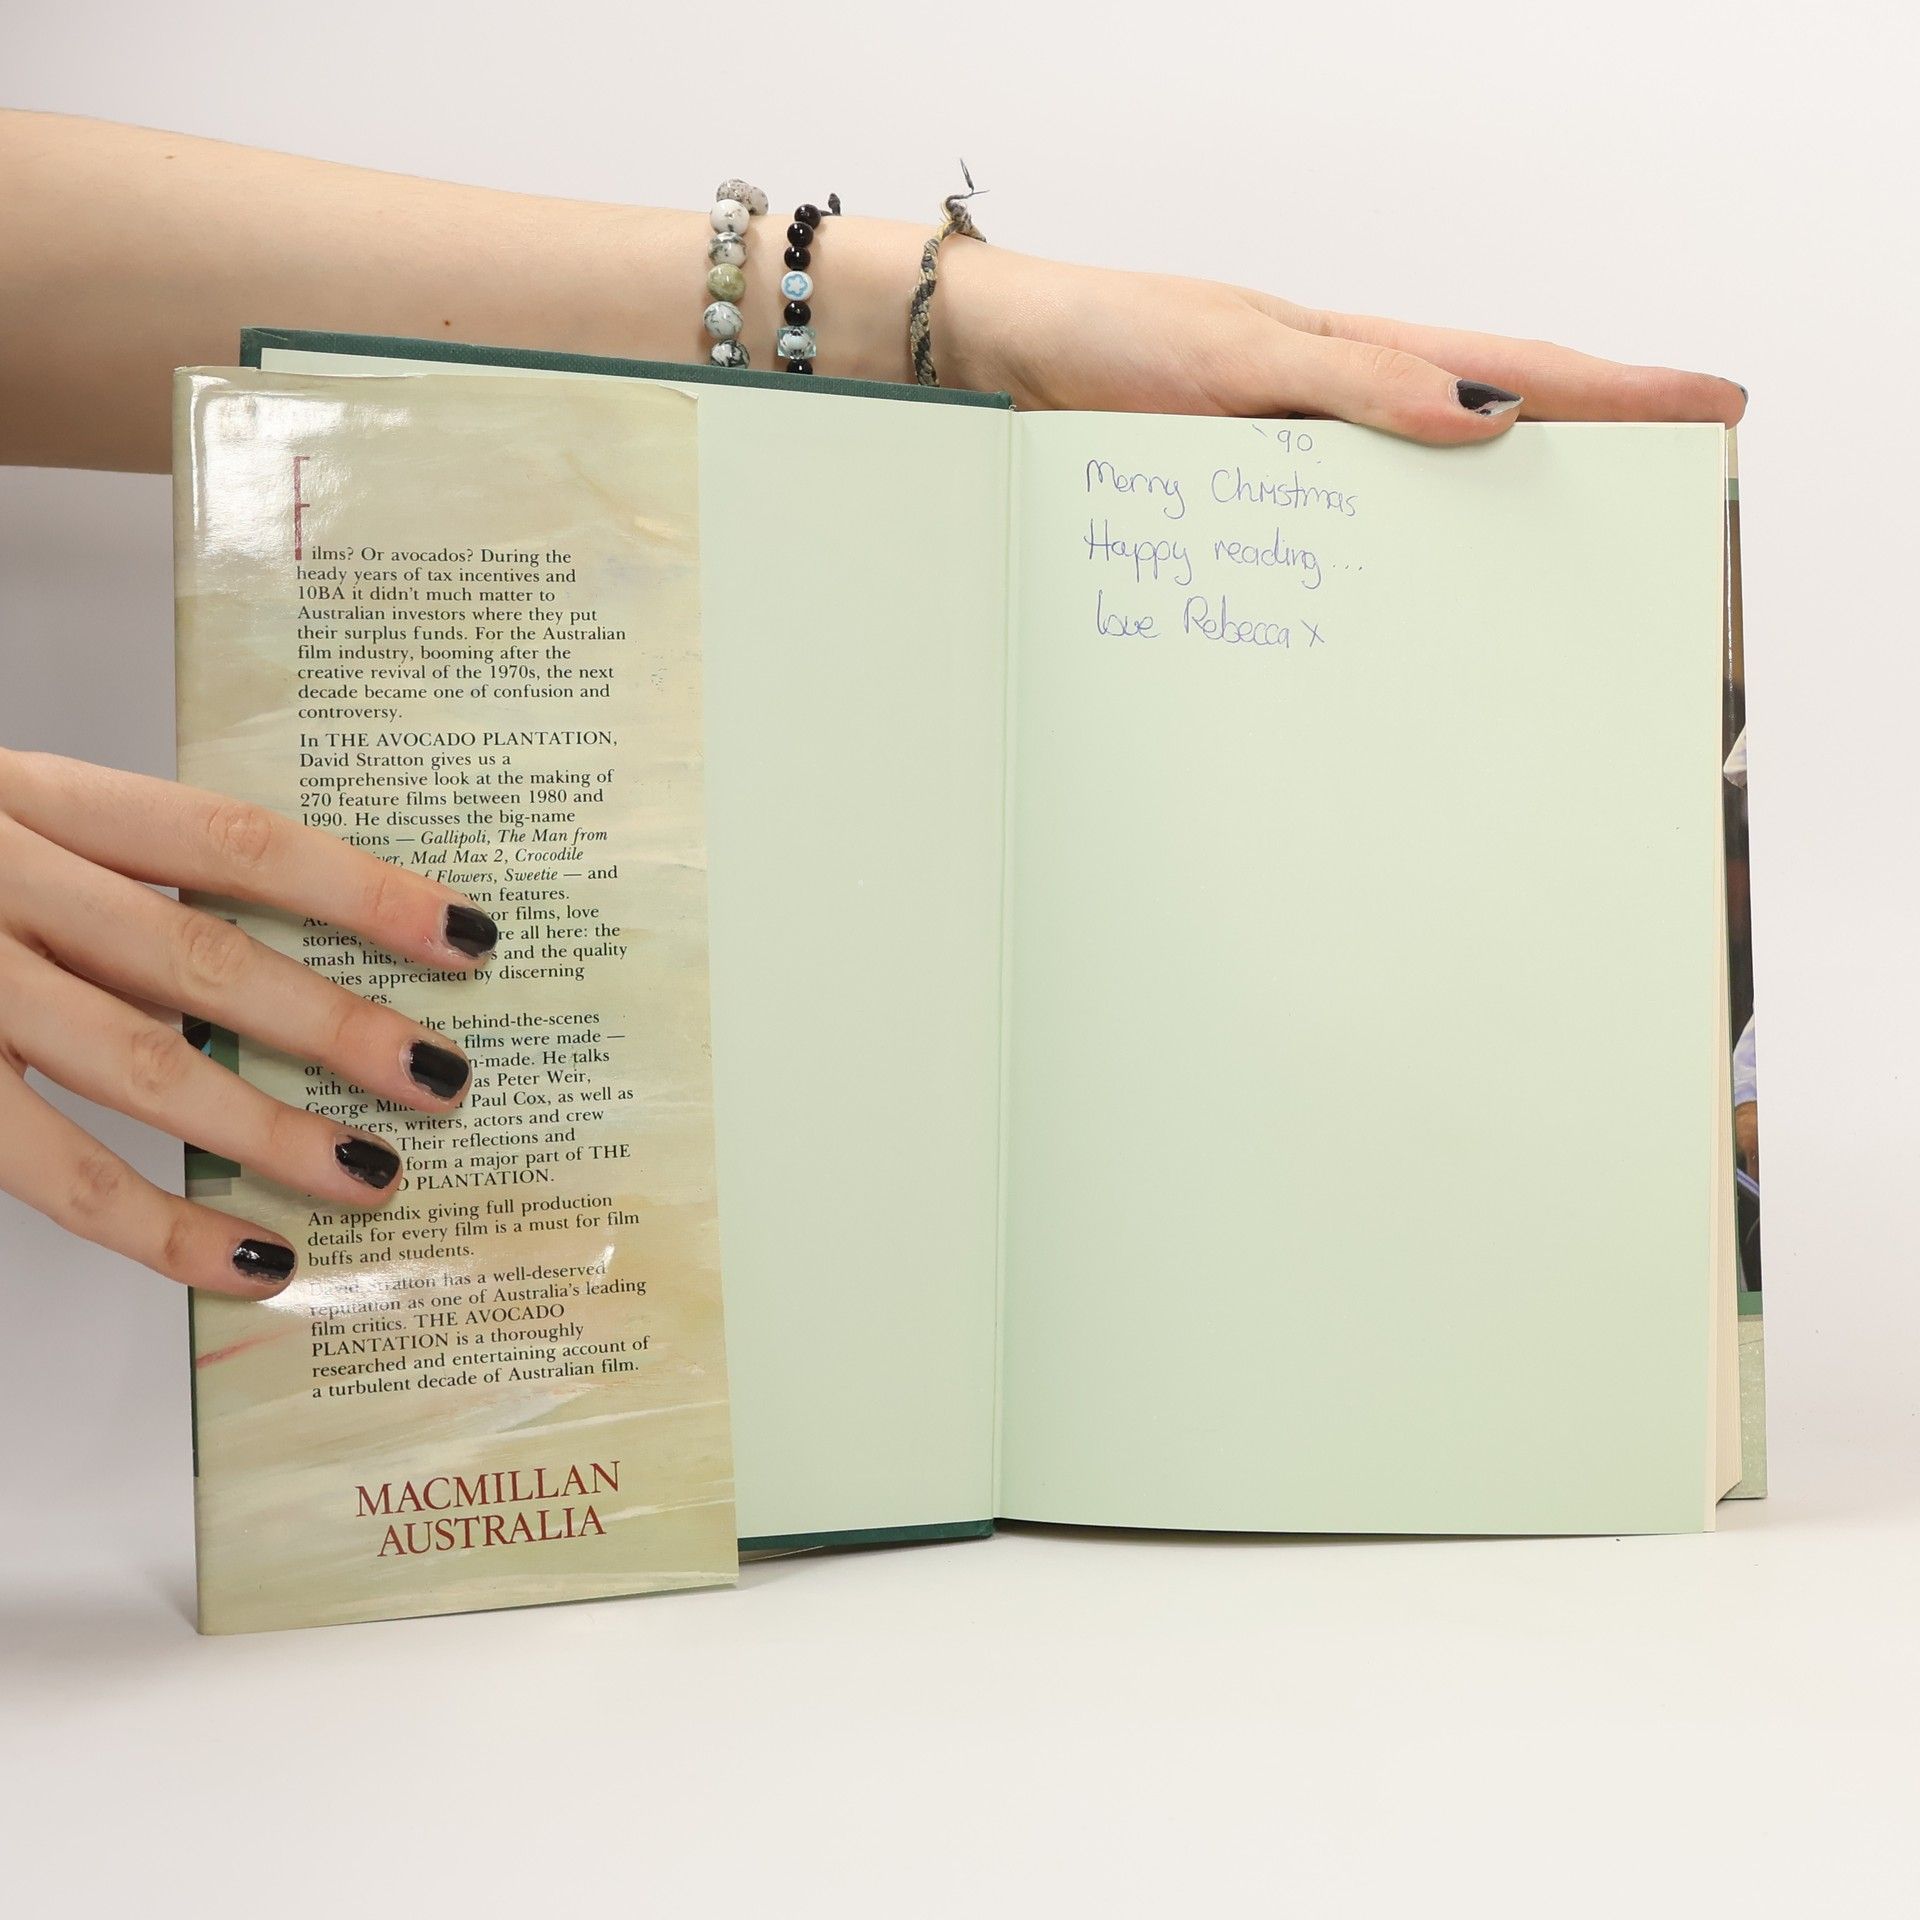 Films? Or avocados? During the
heady years of tax incentives and
10BA it didn't much matter to
Australian investors where they put
their surplus funds. For the Australian
film industry, booming after the
creative revival of the 1970s, the next
decade became one of confusion and
controversy.
In THE AVOCADO PLANTATION,
David Stratton gives us a
comprehensive look at the making of
270 feature films between 1980 and
1990. He discusses the big-name
— Gallipoli, The Man from
Mad Max 2, Crocodile
Flowers, Sweetie — and
features.
films, love
stories, all here: the
smash hits, and the quality
appreciated by discerning
the behind-the-scenes
films were made —
or He talks
with as Peter Weir,
George Paul Cox, as well as
writers, actors and crew
Their reflections and
form a major part of THE
PLANTATION.
An appendix giving full production
details for every film is a must for film
buffs and students.
David Stratton has a well-deserved
reputation as one of Australia's leading
film critics. THE AVOCADO
PLANTATION is a thoroughly
researched and entertaining account of
a turbulent decade of Australian film.
MACMILLAN
AUSTRALIA
'90.
Merry Christmas
Happy reading...
love Rebecca X